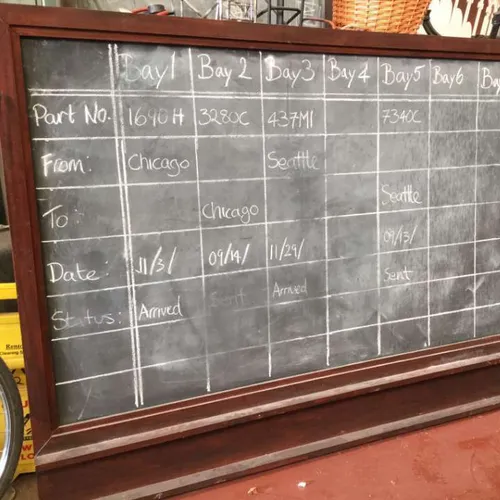 Bay 1 Bay 2 Bay 3 Bay 4 Bay 5 Bay 6 Bay
Part No. 1690H 3280C 437M1 7340C
From: Chicago Seattle
To: Chicago Seattle
Date: 11/3/ 09/14/ 11/29/ 09/13/
Status: Arrived Sent Arrived Sent